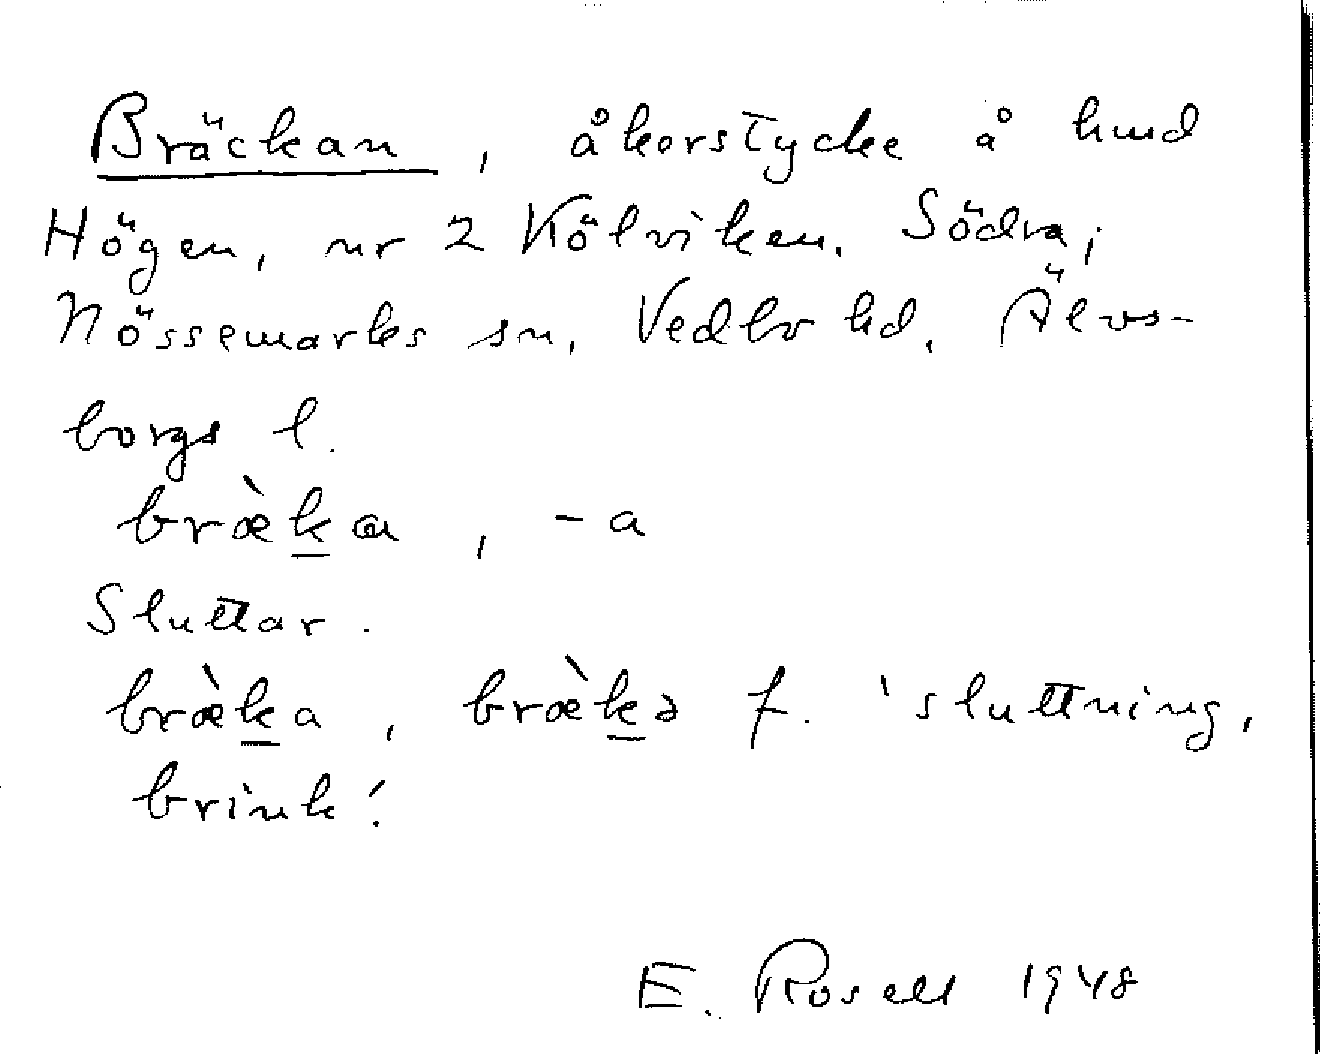 Bräckan, åkerstycke å hmd
Högen, nr 2 Kölviken, Södra,
Nössemarks sn, Vedbo hd, Älvs-
borgs l.
bræ̀k̲a, -a
Sluttar.
bræ̀k̲a, bræ̀k̲ə f. 'sluttning,
brink'.
E. Rosell 1948